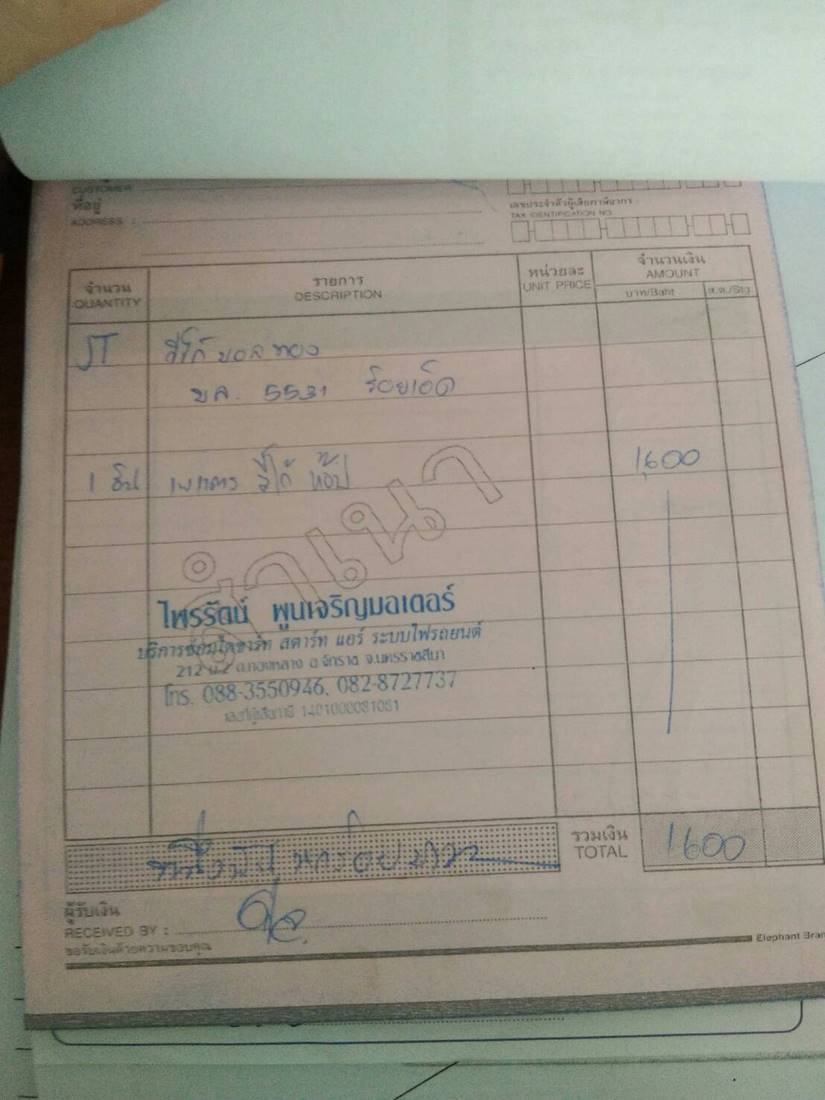 CUSTOMER
ที่อยู่
ADDRESS :
เลขประจำตัวผู้เสียภาษีอากร
TAX IDENTIFICATION NO.
จำนวน รายการ หน่วยละ จำนวนเงิน
QUANTITY DESCRIPTION UNIT PRICE AMOUNT
บาท/Baht ส.ต./Stg
วีโก้ ทอง
บล. 5531 ร้อยเอ็ด
1 วีโก้ 1,600
สำเนา
ไพรรัตน์ พูนเจริญมอเตอร์
บริการซ่อมไดชาร์ท สตาร์ท แอร์ ระบบไฟรถยนต์
212 ม.2 ต.ทองหลาง อ.จักราช จ.นครราชสีมา
โทร. 088-3550946, 082-8727737
เลขที่ผู้เสียภาษี 1401000081081
หนึ่งพันหกร้อยบาท
รวมเงิน
TOTAL 1600
ผู้รับเงิน
RECEIVED BY :
ขอรับเงินด้วยความขอบคุณ
Elephant Bran